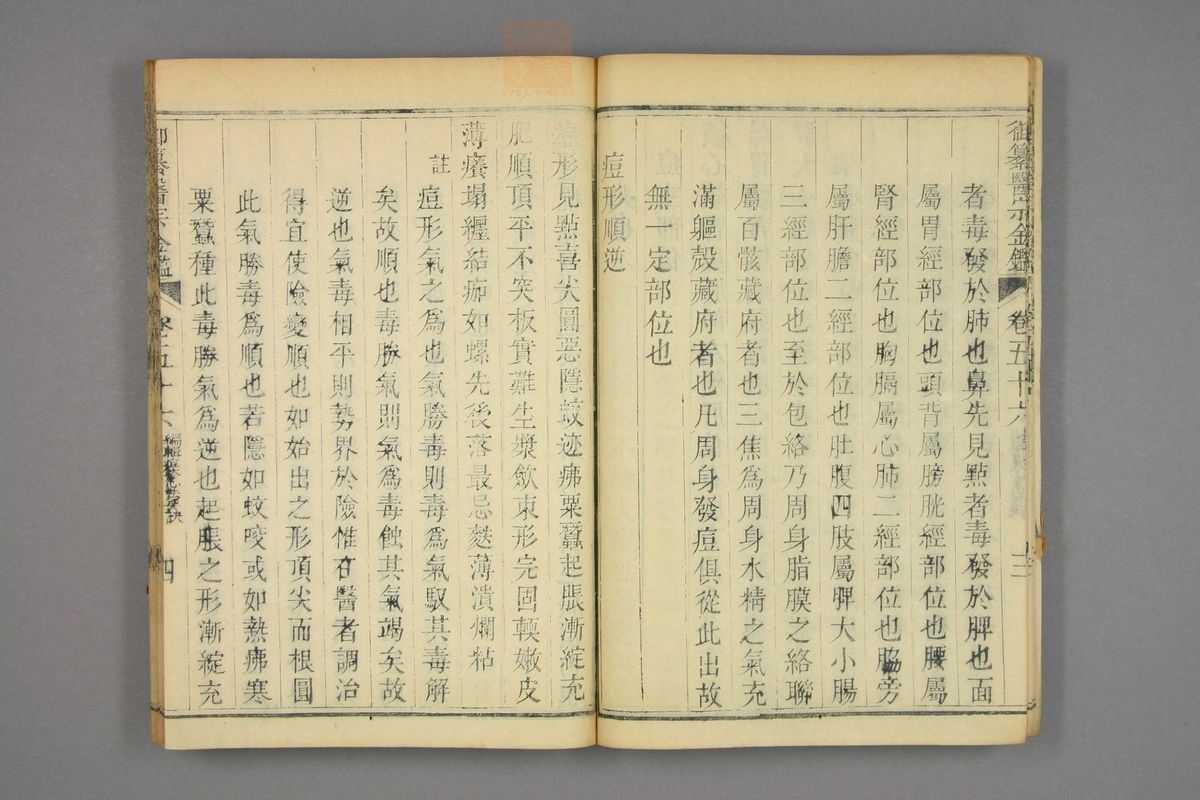 御纂醫宗金鑑 卷五十六 三
者毒發於肺也鼻先見點者毒發於脾也面
屬胃經部位也頭背屬膀胱經部位也腰屬
腎經部位也胸膈屬心肺二經部位也脇旁
屬肝膽二經部位也肚腹四肢屬脾大小腸
三經部位也至於包絡乃周身脂膜之絡聯
屬百骸藏府者也三焦為周身水精之氣充
滿軀殼藏府者也凡周身發痘俱從此出故
無一定部位也
痘形順逆
痘形見點喜尖圓惡隱蚊迹疿粟蠶起脹漸綻充
肥順頂平不突板實難生漿歛束形完固輭嫩皮
薄癢塌纏結痂如螺先後落最忌麩薄潰爛粘
註 痘形氣之為也氣勝毒則毒為氣馭其毒解
矣故順也毒勝氣則氣為毒蝕其氣竭矣故
逆也氣毒相平則勢界於險惟在醫者調治
得宜使險變順也如始出之形頂尖而根圓
此氣勝毒為順也若隱如蚊咬或如熱疿寒
粟蠶種此毒勝氣為逆也起脹之形漸綻充
御纂醫宗金鑑 卷五十六 四